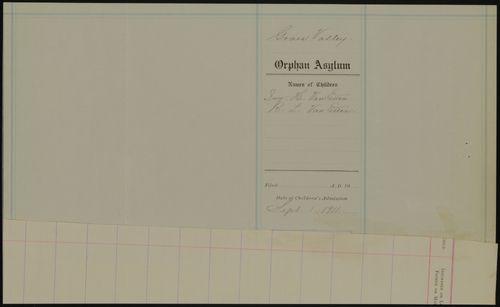 Grass Valley.
Orphan Asylum
Names of Children
Guy H. Van Etten
R. L. Van Etten
Filed A. D. 18
Date of Children's Admission
Sept. 1, 1911